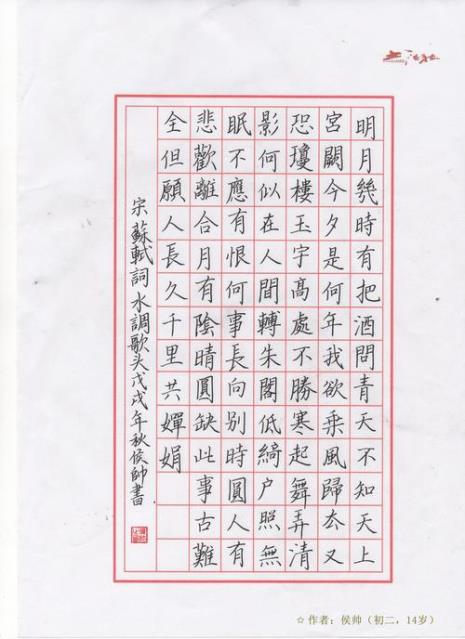 明月幾時有把酒問青天不知天上
宮闕今夕是何年我欲乘風歸去又
恐瓊樓玉宇髙處不勝寒起舞弄清
影何似在人間轉朱閣低綺户照無
眠不應有恨何事長向别時圓人有
悲歡離合月有陰晴圓缺此事古難
全但願人長久千里共嬋娟
宋蘇軾詞水調歌头戊戌年秋侯帥書
☆作者：侯帅（初二，14岁）